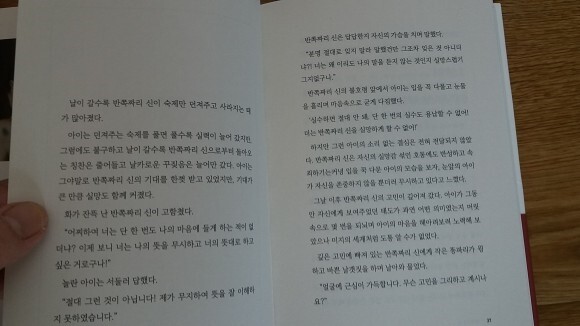 날이 갈수록 반쪽짜리 신이 숙제만 던져주고 사라지는 때
가 많아졌다.
아이는 던져주는 숙제를 풀면 풀수록 실력이 늘어 갔지만,
그럼에도 불구하고 날이 갈수록 반쪽짜리 신으로부터 돌아오
는 칭찬은 줄어들고 날카로운 꾸짖음은 늘어만 갔다. 아이는
그야말로 반쪽짜리 신의 기대를 한껏 받고 있었지만, 기대가
큰 만큼 실망도 함께 커졌다.
화가 잔뜩 난 반쪽짜리 신이 고함쳤다.
"어찌하여 너는 단 한 번도 나의 마음에 들게 하는 적이 없
더냐? 이제 보니 너는 나의 뜻을 무시하고 너의 뜻대로 하고
싶은 거로구나!"
놀란 아이는 서둘러 답했다.
"절대 그런 것이 아닙니다! 제가 무지하여 뜻을 잘 이해하
지 못하였습니다."
반쪽짜리 신은 답답한지 자신의 가슴을 치며 말했다.
"분명 절대로 잊지 말라 말했건만 그조차 잊은 것 아니더
냐?! 너는 왜 이리도 나의 말을 듣지 않는 것인지 실망스럽기
그지없구나."
반쪽짜리 신의 불호령 앞에서 아이는 입을 꾹 다물고 눈물
을 흘리며 마음속으로 굳게 다짐했다.
'실수하면 절대 안 돼, 단 한 번의 실수도 용납할 수 없어!
더는 반쪽짜리 신을 실망하게 할 수 없어!'
하지만 그런 아이의 소리 없는 결심은 전혀 전달되지 않았
다. 반쪽짜리 신은 자신의 실망감 섞인 호통에도 반성하고 속
죄하기는커녕 입을 꾹 다문 아이의 모습을 보자, 눈앞의 아이
가 자신을 존중하지 않을 뿐더러 무시하고 있다고 느꼈다.
그날 이후 반쪽짜리 신의 고민이 깊어져 갔다. 아이가 그동
안 자신에게 보여주었던 태도가 과연 어떤 의미였는지 머릿
속으로 몇 번을 되뇌며 아이의 마음을 헤아려보려 노력해 보
았으나 미지의 세계처럼 도통 알 수가 없었다.
깊은 고민에 빠져 있는 반쪽짜리 신에게 작은 똥파리가 윙
하고 바쁜 날갯짓을 하며 날아와 물었다.
"얼굴에 근심이 가득합니다. 무슨 고민을 그리하고 계시나
요?"
21